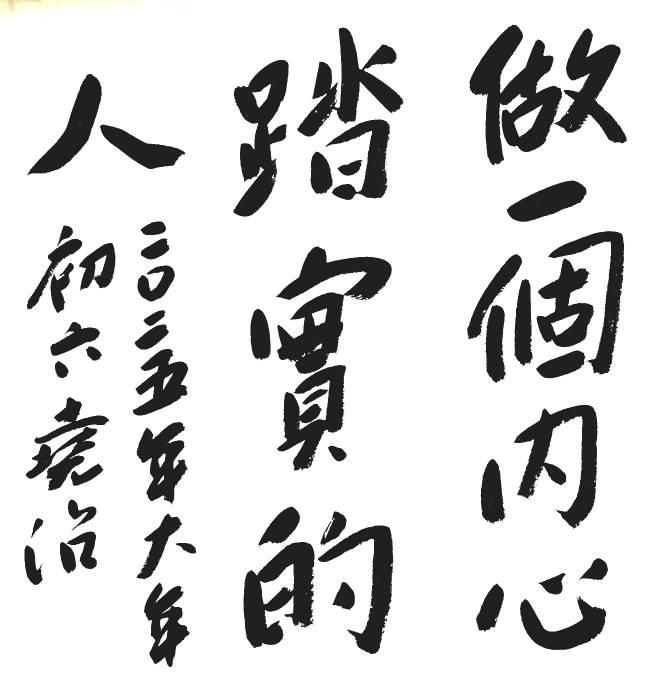 做一個内心
踏實的
人
二〇二五年大年
初六堯治